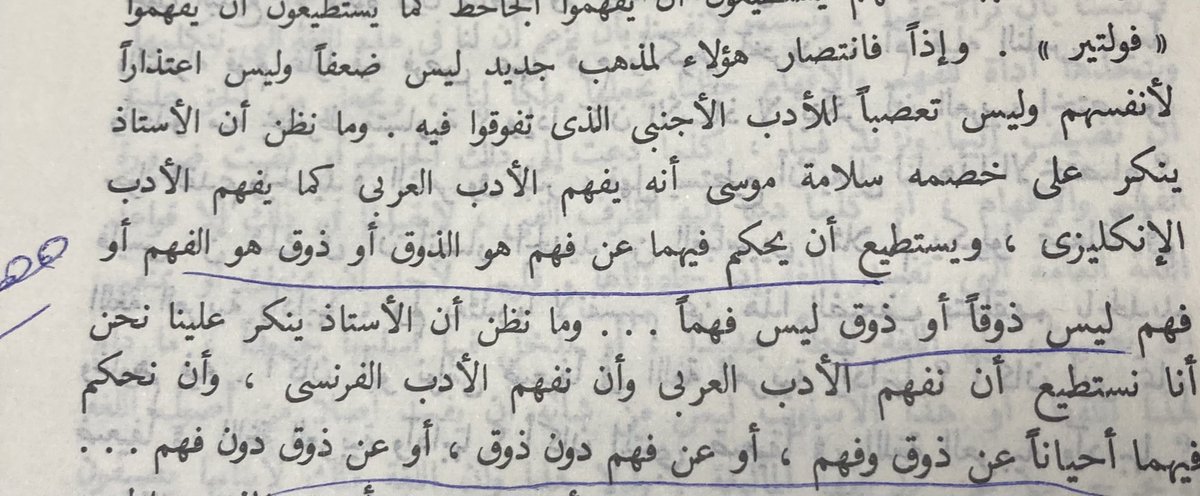 يستطيعون أن يفهموا الجاحظ كما يستطيعون أن يفهموا
« فولتير » . وإذاً فانتصار هؤلاء لمذهب جديد ليس ضعفاً وليس اعتذاراً
لأنفسهم وليس تعصباً للأدب الأجنبى الذى تفوقوا فيه . وما نظن أن الأستاذ
ينكر على خصمه سلامة موسى أنه يفهم الأدب العربى كما يفهم الأدب
الإنكليزى ، ويستطيع أن يحكم فيهما عن فهم هو الذوق أو ذوق هو الفهم أو
فهم ليس ذوقاً أو ذوق ليس فهماً . . . وما نظن أن الأستاذ ينكر علينا نحن
أنا نستطيع أن نفهم الأدب العربى وأن نفهم الأدب الفرنسى ، وأن نحكم
فيهما أحياناً عن ذوق وفهم ، أو عن فهم دون ذوق ، أو عن ذوق دون فهم . . .